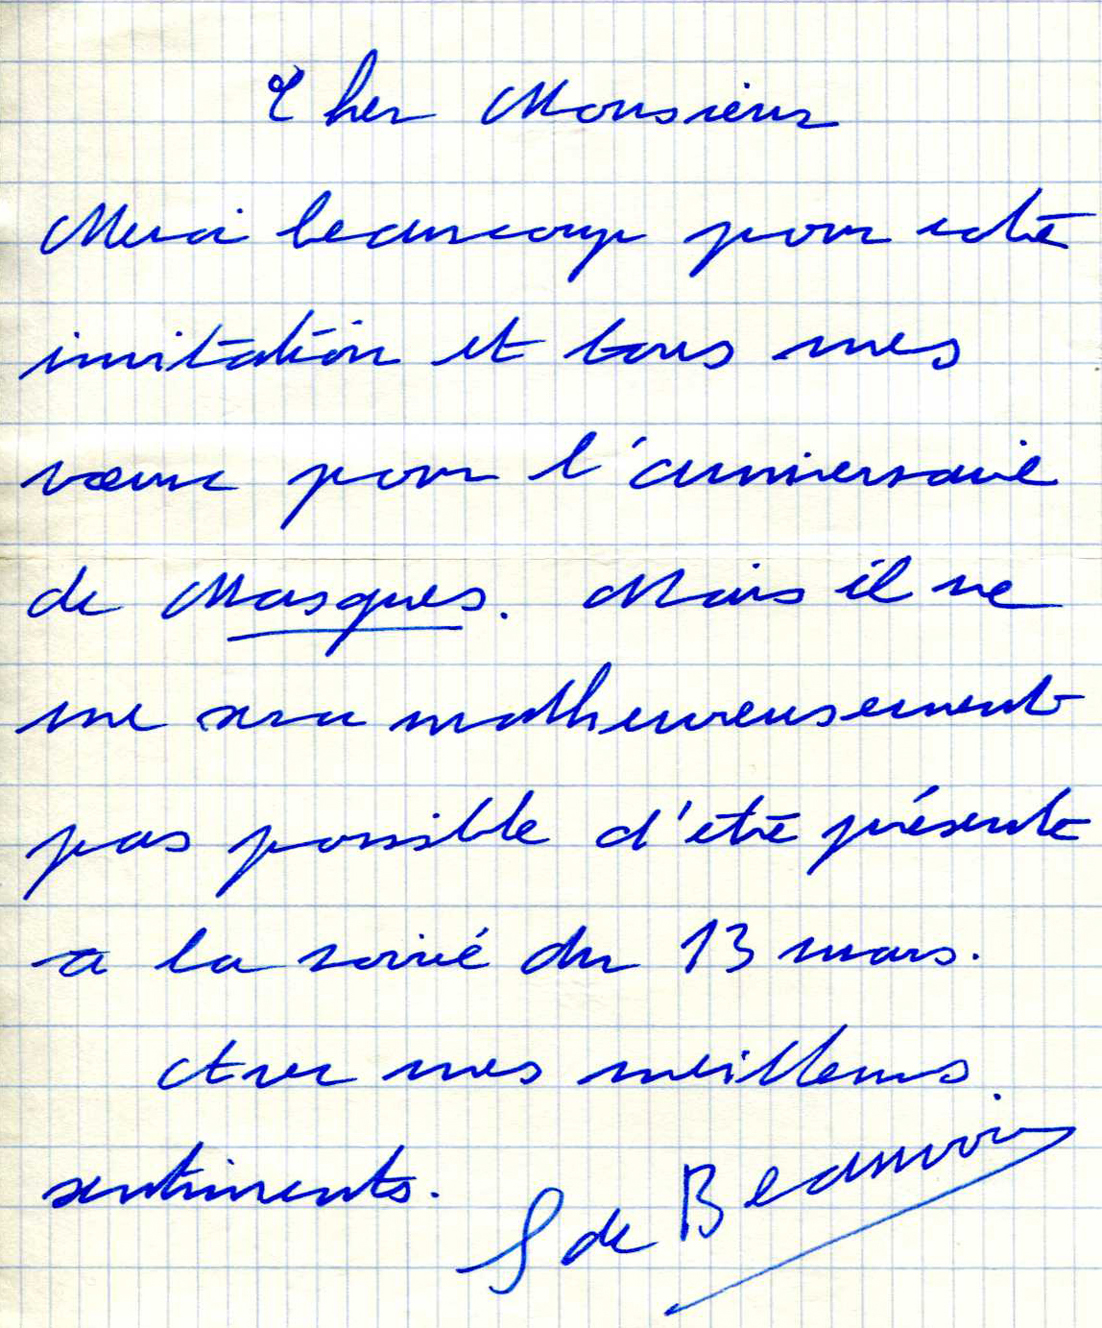 Cher Monsieur
Merci beaucoup pour cette
invitation et tous mes
vœux pour l'anniversaire
de Masques. Mais il ne
me sera malheureusement
pas possible d'être présente
a la soirée du 13 mars.
Avec mes meilleurs
sentiments.
S de Beauvoir